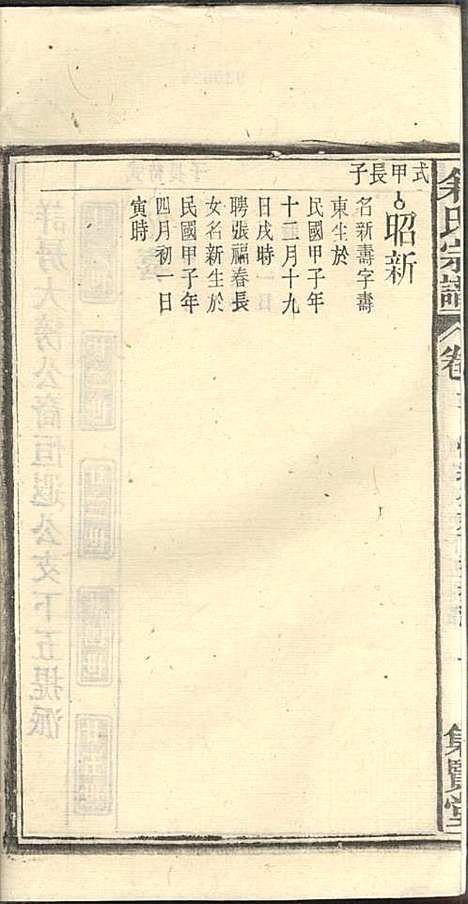 余氏宗譜
卷
集賢堂
式甲長子
昭新
名新壽字壽
東生於
民國甲子年
十二月十九
日戌時
聘張福春長
女名新生於
民國甲子年
四月初一日
寅時